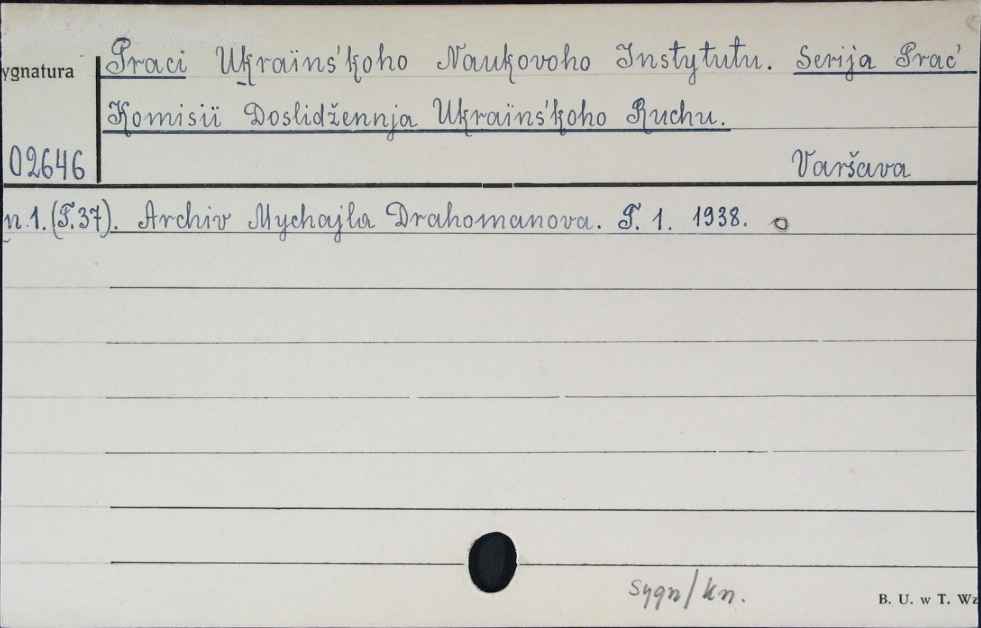 Praci Ukraïns'koho Naukovoho Instytutu. Serija Prac'
ygnatura
Komisiï Doslidžennja Ukraïns'koho Ruchu.
02646
Varšava
n.1.(T.37). Archiv Mychajła Drahomanova. T. 1. 1938.
sygn/kn.
B. U. w T. Wz